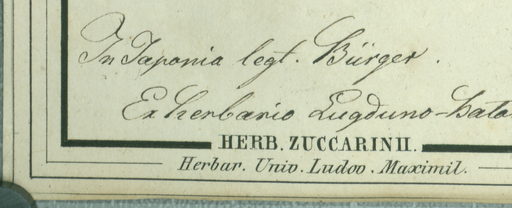 In Japonia legt. Bürger.
Ex herbario Lugduno-Bata
HERB. ZUCCARINII.
Herbar. Univ. Ludov. Maximil.